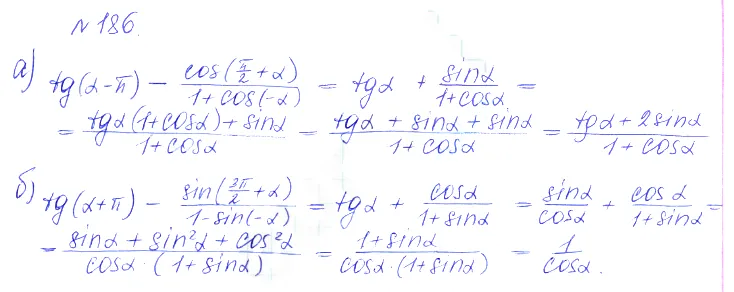 №186.
а) tg(α-π) - cos(π/2 + α)/(1 + cos(-α)) = tgα + sinα/(1+cosα) =
= (tgα(1+cosα) + sinα)/(1+cosα) = (tgα + sinα + sinα)/(1+cosα) = (tgα + 2sinα)/(1+cosα)
б) tg(α+π) - sin(3π/2 + α)/(1-sin(-α)) = tgα + cosα/(1+sinα) = sinα/cosα + cosα/(1+sinα) =
= (sinα + sin²α + cos²α)/(cosα·(1+sinα)) = (1+sinα)/(cosα·(1+sinα)) = 1/cosα.